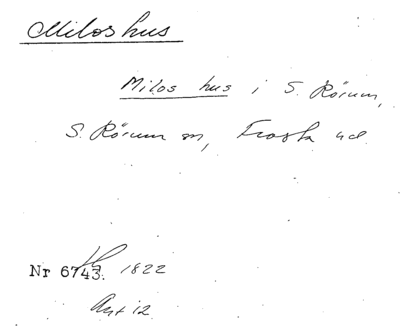 Miloshus
Milos hus i S. Rörum,
S. Rörum sn, Frosta hd.
Nr 6743. 1822